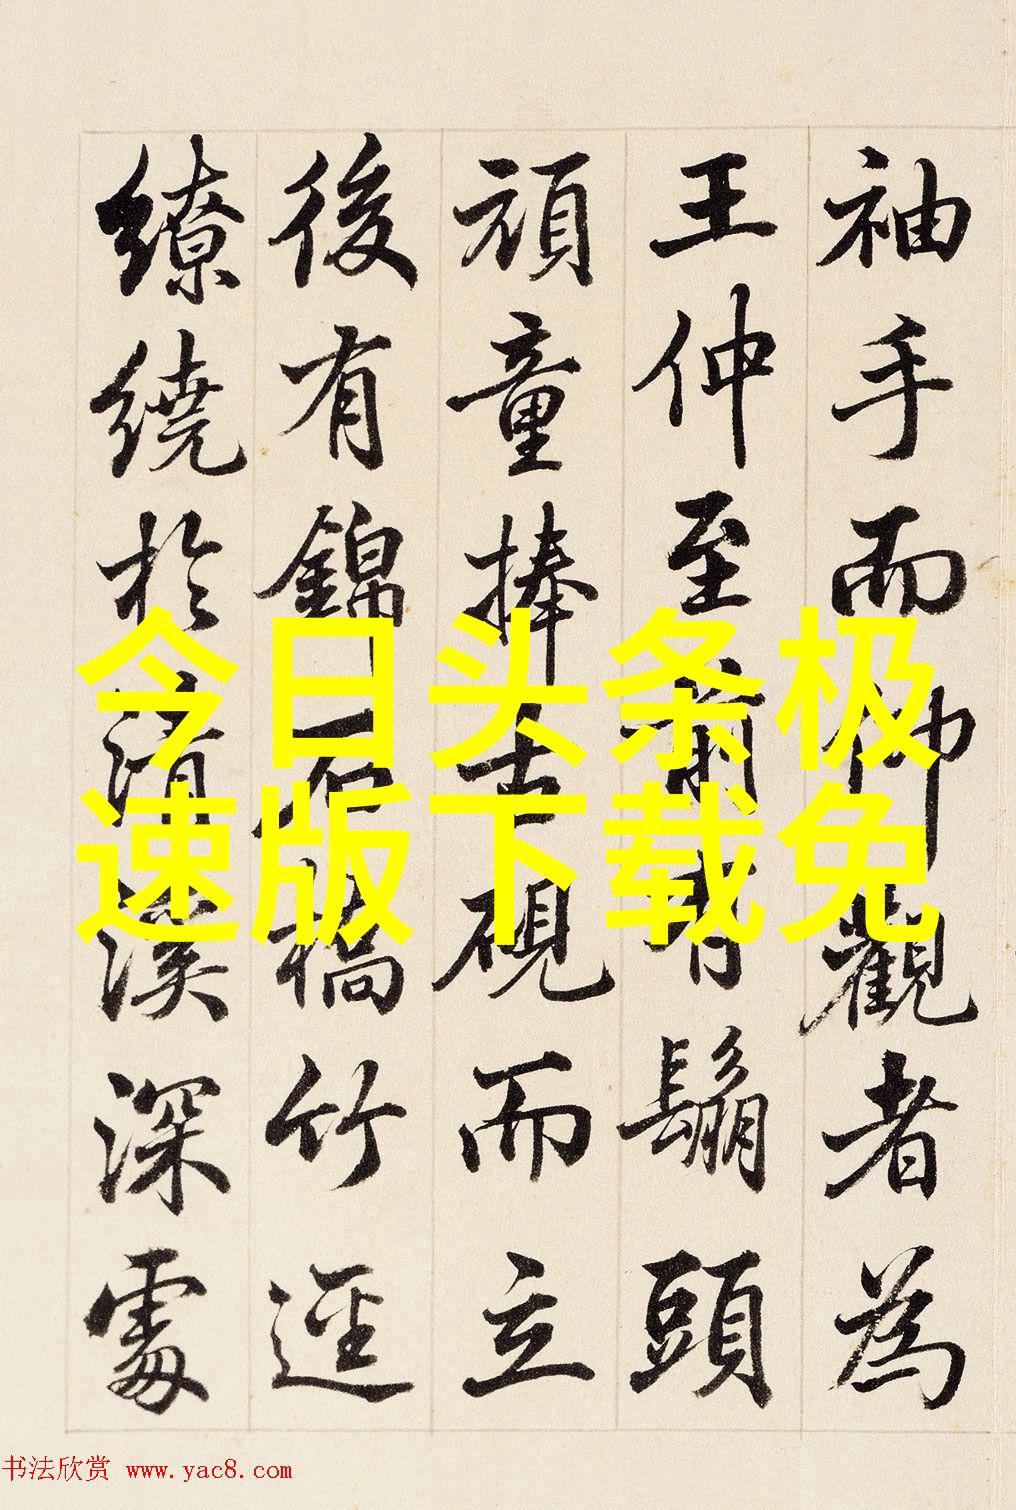 袖手而仰觀者為
王仲至前有鬅頭
頑童捧古硯而立
後有錦石橋竹逕
繚繞於清溪深處
今日头条极
速版下载免
书法欣赏 www.yac8.com